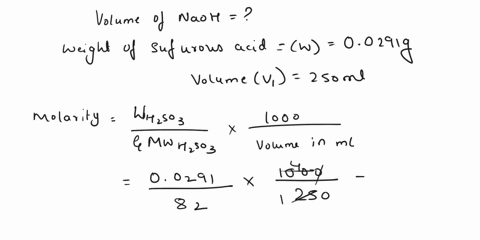 Volume of NaOH = ?
Weight of Sufurous acid = (W) = 0.0291g
Volume (V₁) = 250ml
Molarity = W H₂SO₃ / GMW H₂SO₃ × 1000 / Volume in mL
= 0.0291 / 82 × 1000 4 / 250 1 =